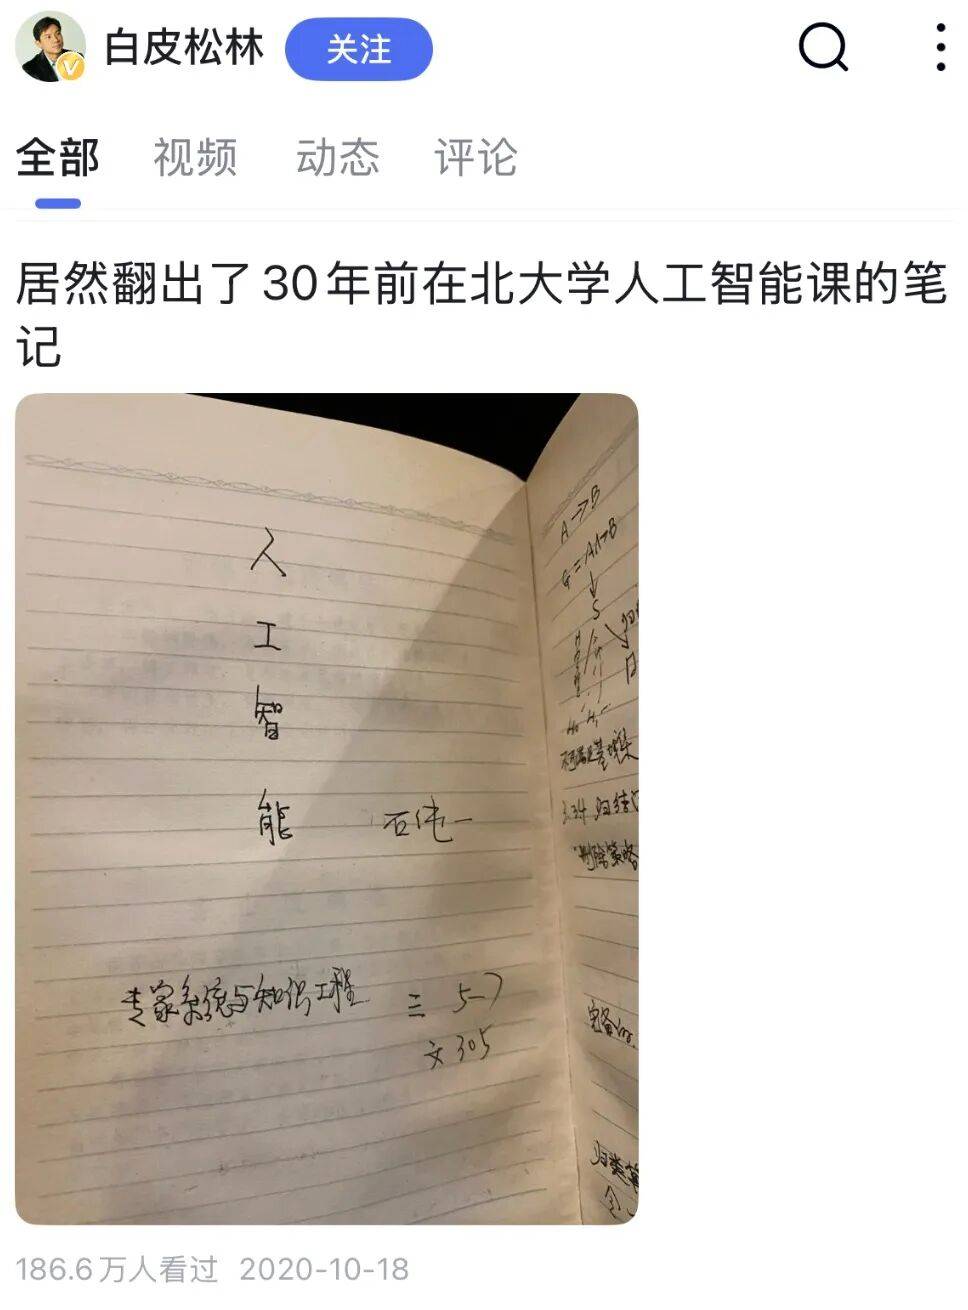 白皮松林
关注
全部 视频 动态 评论
居然翻出了30年前在北大学人工智能课的笔
记
人
工
智
能
石纯一
专家系统与知识工程 三 5-7
文305
A→B
G=A∧~B
↓
S
3.3.4 归结
删除策略
完备
归类
186.6万人看过 2020-10-18